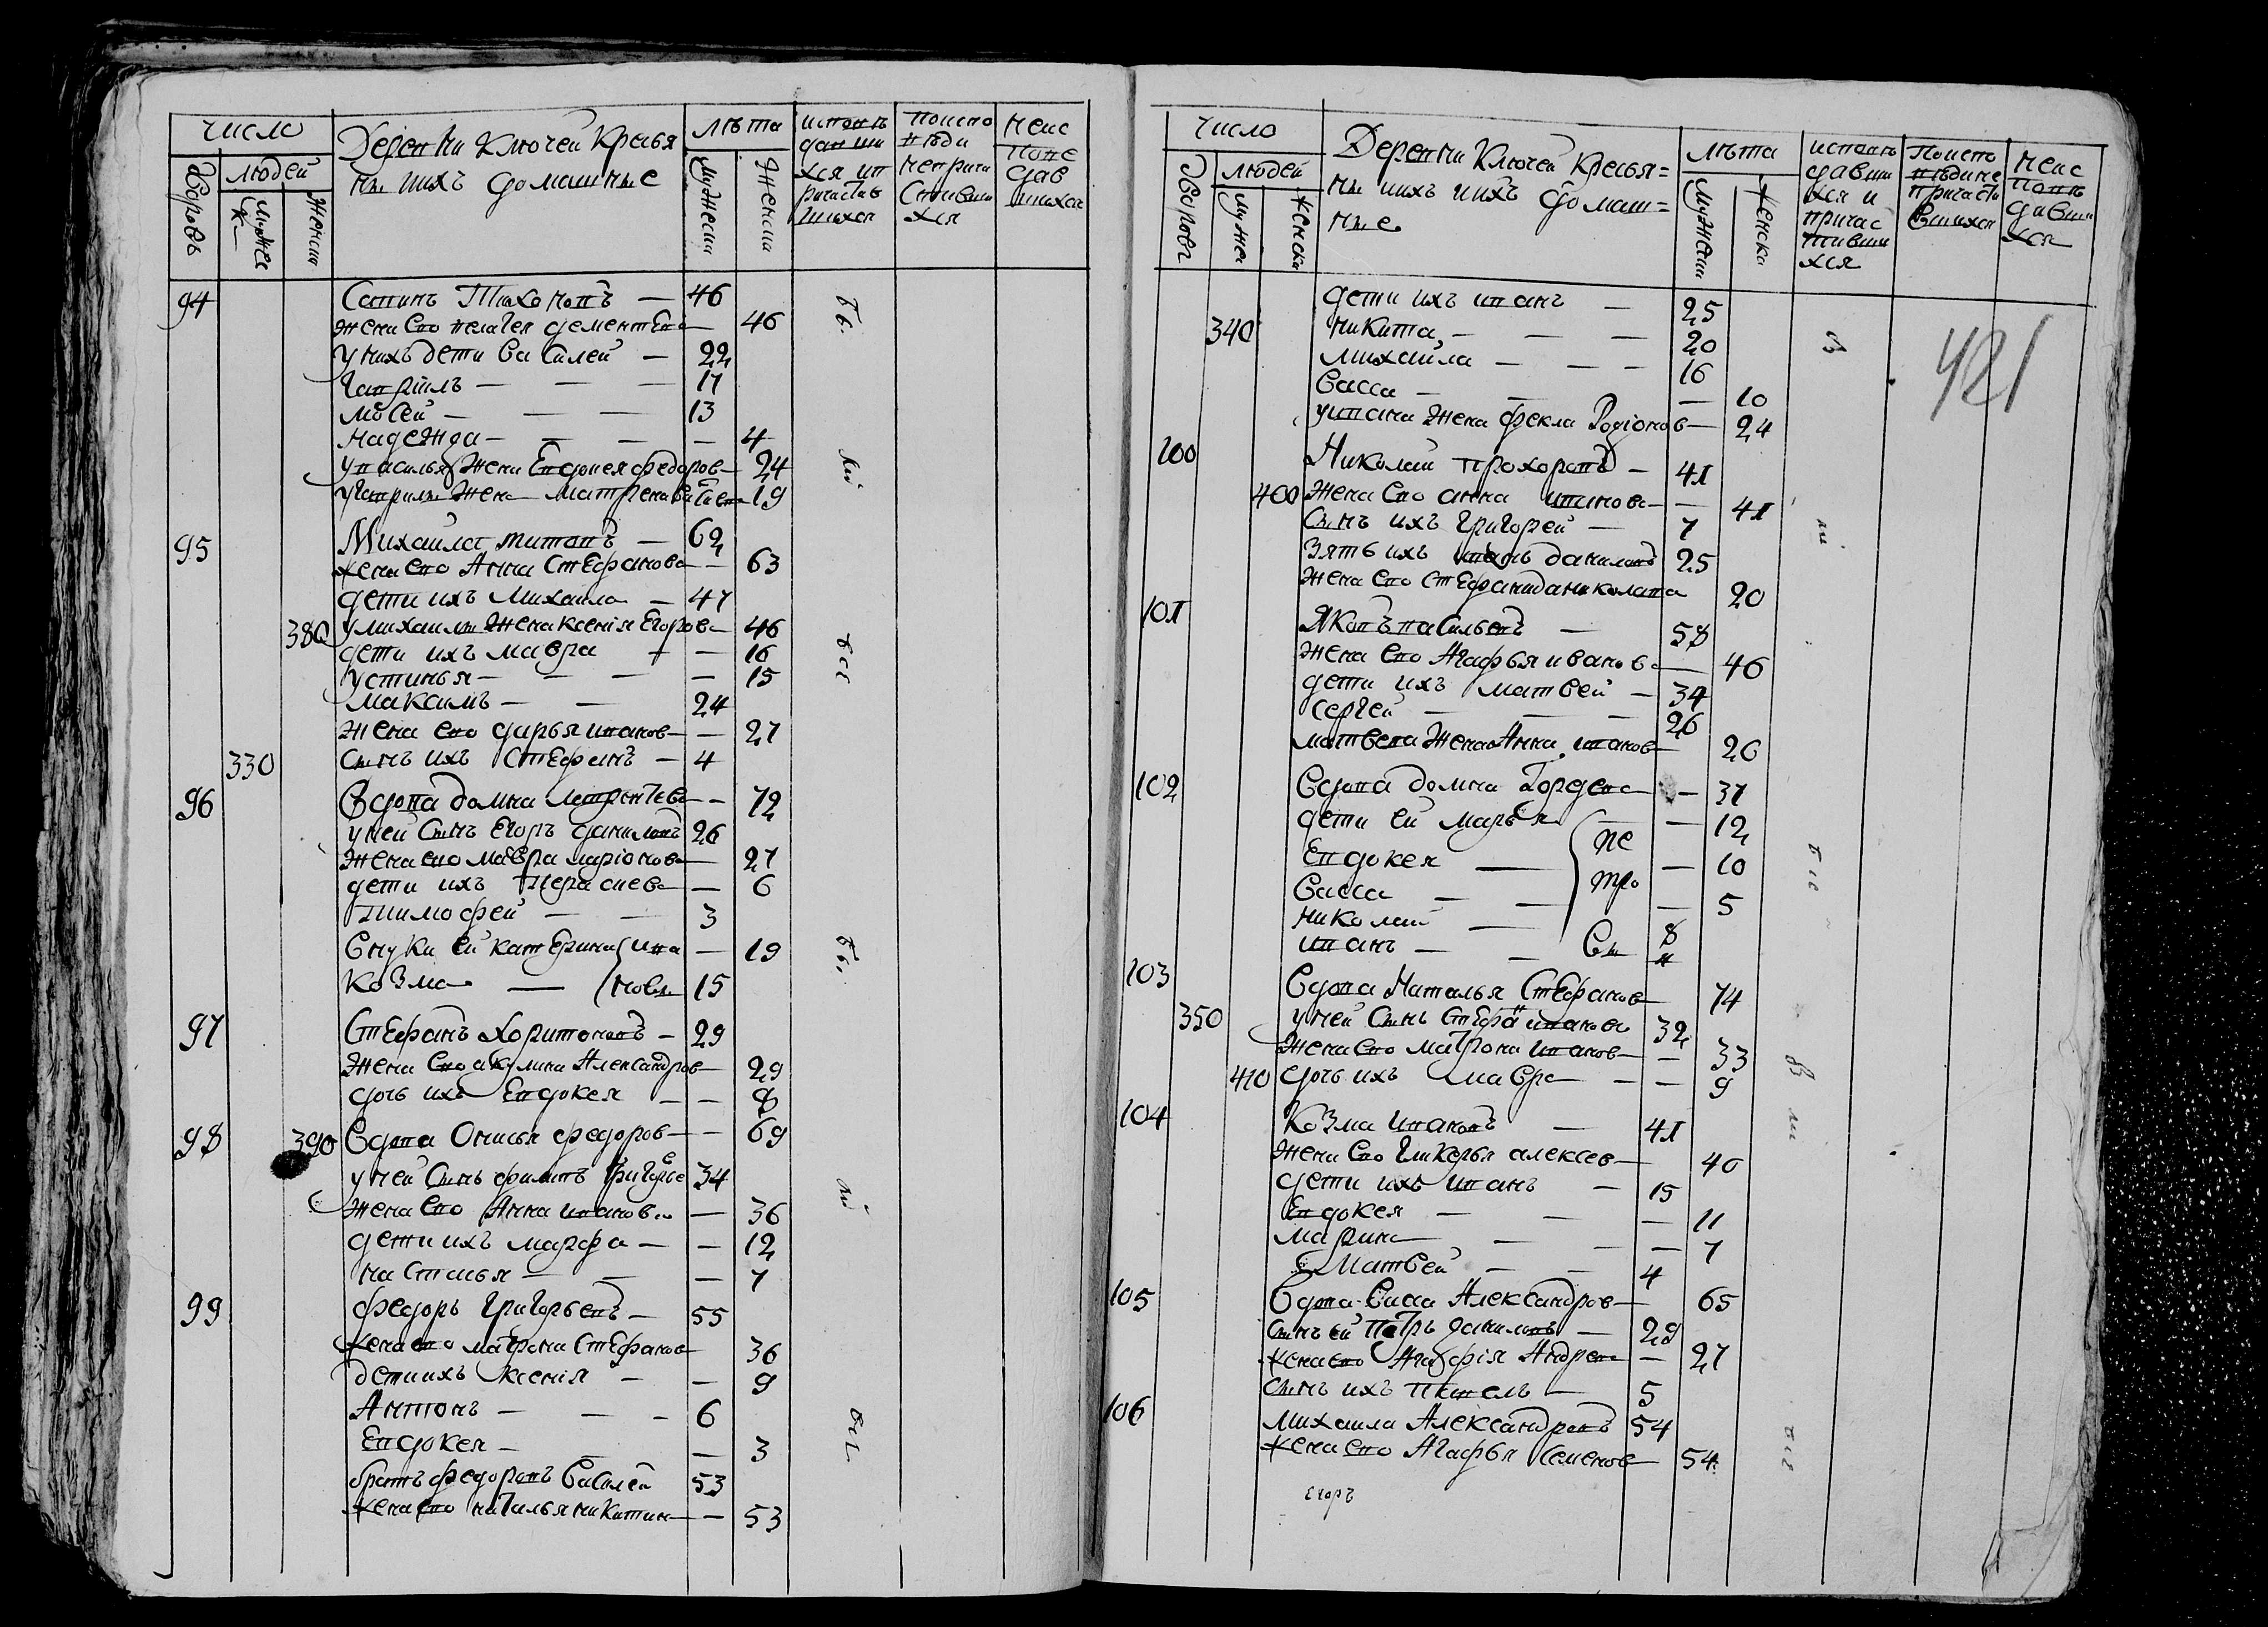 число
людей
Дворовъ
мужес к
женски
Деревни Ключей Кресья
не иихъ домашние
лѣта
мужески
женски
исповѣ
давши
хся ип
ричастив
шихся
поиспо
вѣди
неприча
стивши
хся
неис
пове
дав
шихся
94 Савинъ Тихоновъ — 46
жена ево пелагея дементева — 46
у нихъ дети василей — 22
Гаврилъ — — — 17
мосей — — — 13
надежда — — — — 4
у василья жена Евдокея федоров — 24
у Гаврилы жена Матрена — 19
95 Михаила титовъ — 62
жена ево Анна Стефанова — 63
дети ихъ Михаила — 47
380 у михаилы жена ксения Егорова — 46
дети ихъ мавра — — 16
устинья — — — — 15
максимъ — — 24
жена ево дарья иванов — — 27
330 сынъ ихъ Стефанъ — 4
96 Вдова домна лаврентева — 72
у ней сынъ Егоръ даниловъ 26
жена ево мавра ларионова — 27
дети ихъ Перасиева — 6
Тимофей — — 3
внуки ей катерина ива — 19
козма — новы 15
97 Стефанъ Харитоновъ — 29
жена ево акулина Александров — 29
дочь ихъ Евдокея — — 8
98 390 Вдова Онисья федоров — — 69
у ней сынъ филипъ Григорье 34
жена ево Анна иванова — 36
дети ихъ марфа — — 12
настасья — — — 7
99 федоръ Григорьевъ — 55
жена ево матрона Стефанов 36
дети ихъ ксения — — 9
Антонъ — — — 6
Евдокея — — 3
братъ федоровъ василей 53
жена ево наталья никитин — — 53
число
людей
Дворовъ
мужес
женски
Деревни Ключей Кресья=
не иихъ ихъ домаш=
ние
лѣта
мужески
женски
исповѣ
давши
хся и
причас
тивши
хся
Поиспо
вѣди не
причасти
вшихся
неис
повѣ
давши
хся
421
дети ихъ иванъ — 25
340 никита — — — 20
михаила — — — 16
васса — — — 10
у ивана жена фекла Родионов — 24
100 Николай прохоровъ — 41
400 жена ево анна иванова — — 41
сынъ ихъ Григорей — 7
зять ихъ иванъ даниловъ 25
жена ево Стефанида николаева 20
101 Яковъ васильевъ — 58
жена ево Агафья иванова — 46
дети ихъ матвей — 34
сергей — — 26
матвея жена Анна иванов — 26
102 Вдова домна Гордева — 37
дети ей марья — — 12
Евдокея — пе — 10
васса — — тро — 5
николай — 8
иванъ — — вы 4
103 Вдова Наталья Стефанов — 74
350 у ней сынъ Стефанъ иванов 32
жена ево матрона иванов — — 33
410 дочь ихъ мавра — — 9
104 Козма ивановъ — 41
жена ево гликерья алексев — 40
дети ихъ иванъ — 15
Евдокея — — — 11
марина — — — 7
Матвей — — 4
105 Вдова васса Александров — 65
сынъ ей Петръ даниловъ — 29
жена ево Агафия Андрева — 27
сынъ ихъ павелъ — 5
106 михаила Александровъ 54
жена ево Агафья семенов — 54
Егоръ